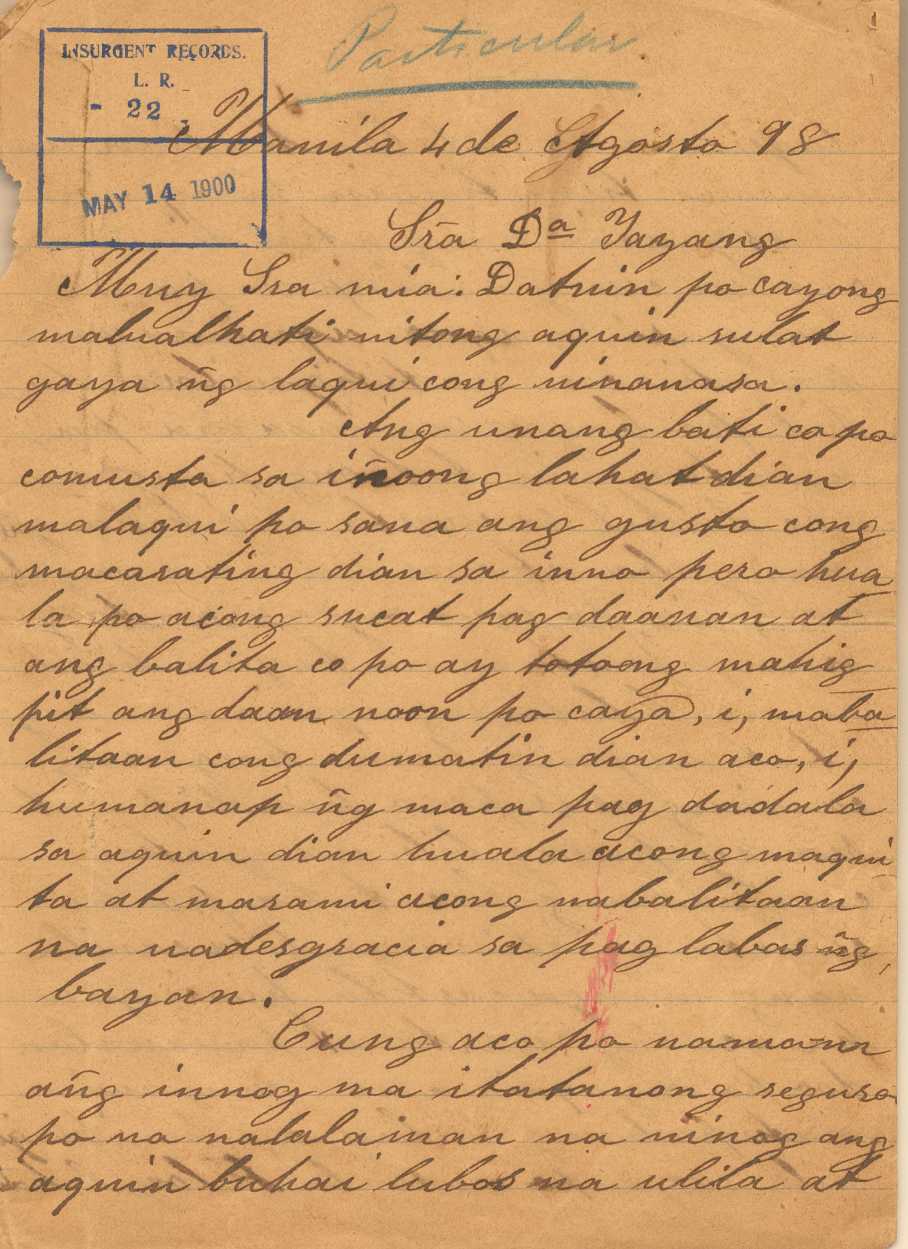 Particular
INSURGENT RECORDS.
L. R.
- 22 -
MAY 14 1900
Manila 4 de Agosto 98
Sra Da Yayang
Muy Sra mia: Datnin po cayong
malualhati nitong aquin sulat
gaya ñg laqui cong ninanasa.
Ang unang bati co po
comusta sa iñoong lahat dian
malaqui po sana ang gusto cong
macarating dian sa inno pero hua
la po acong sucat pag daanan at
ang balita co po ay totoong mahig
pit ang daan noon po caya, i, maba
litaan cong dumatin dian aco, i,
humanap ñg maca pag dadala
sa aquin dian huala acong maqui
ta at marami acong nabalitaan
na nadesgracia sa pag labas ñg
bayan.
Cung aco po naman
añg innog ma itatanong seguro
po na nalalaman na ninog ang
aquin buhai lubos na ulila at